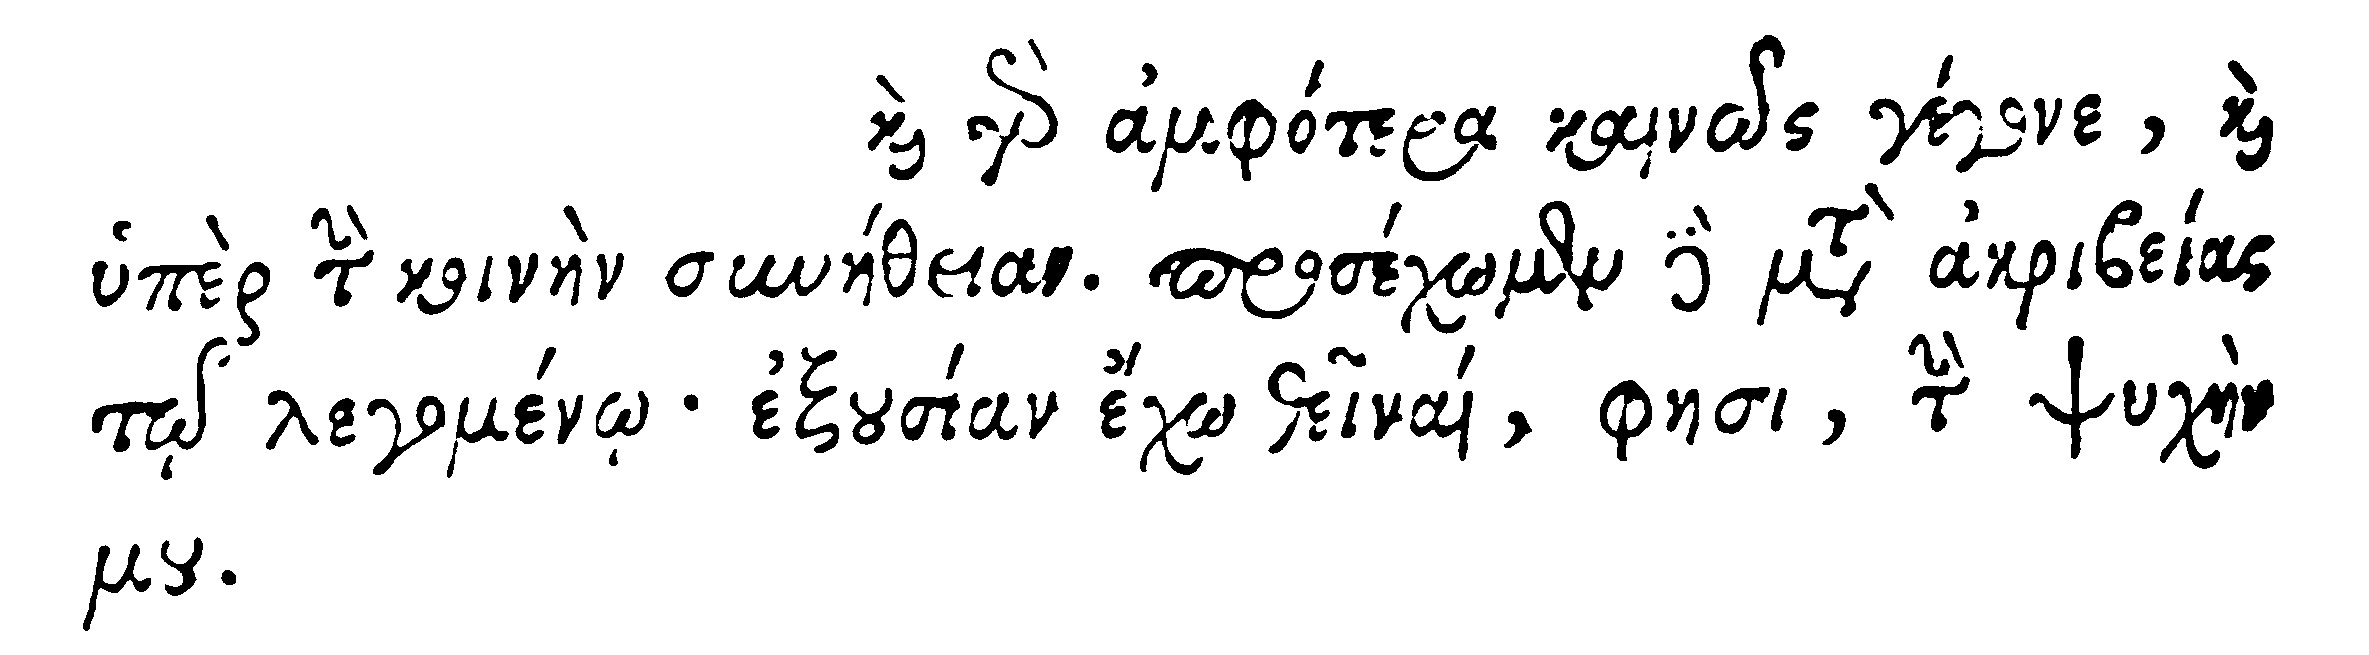 καὶ γὰρ ἀμφότερα καινῶς γέγονε, καὶ
ὑπὲρ τὴν κοινὴν συνήθειαν. προσέχωμεν δὲ μετὰ ἀκριβείας
τῷ λεγομένῳ· ἐξουσίαν ἔχω θεῖναί, φησι, τὴν ψυχήν
μου.